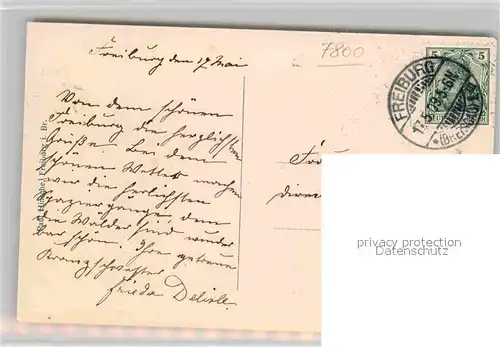 Freiburg den 17. Mai
7800
Von dem schönen
Freiburg die herzlichsten
Grüße. Bei dem
schönen Wetter machen
wir die herlichsten
Spaziergänge, denn
die Wälder sind wunder
bar schön. Ihre getreue
Kranzschwester
Frieda Delisle.
FREIBURG
5
privacy protection
Datenschutz